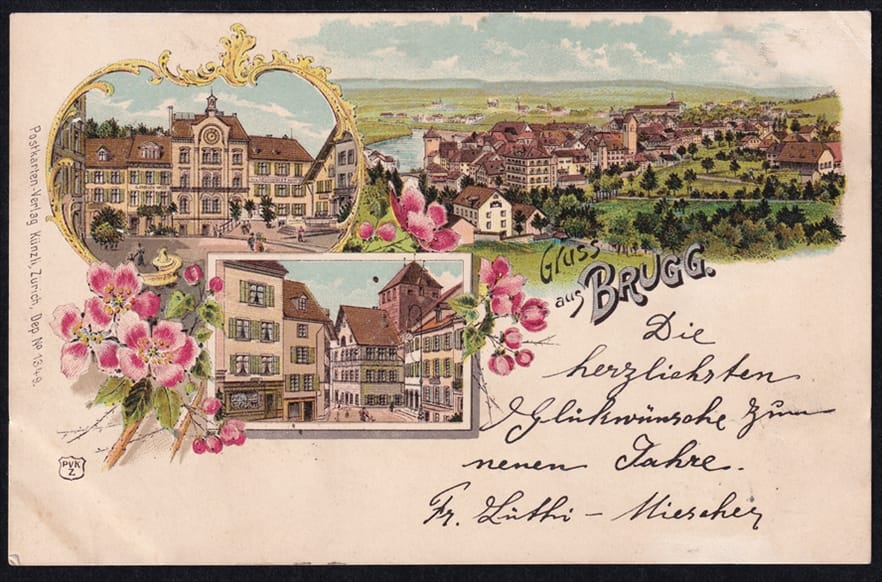 Postkarten-Verlag Künzli, Zürich, Dep. No 1349.
Gruss
aus BRUGG.
Die
herzlichsten
Glükwünsche zum
neuen Jahre.
Fr. Lüthi – Miescher
PVK
Z